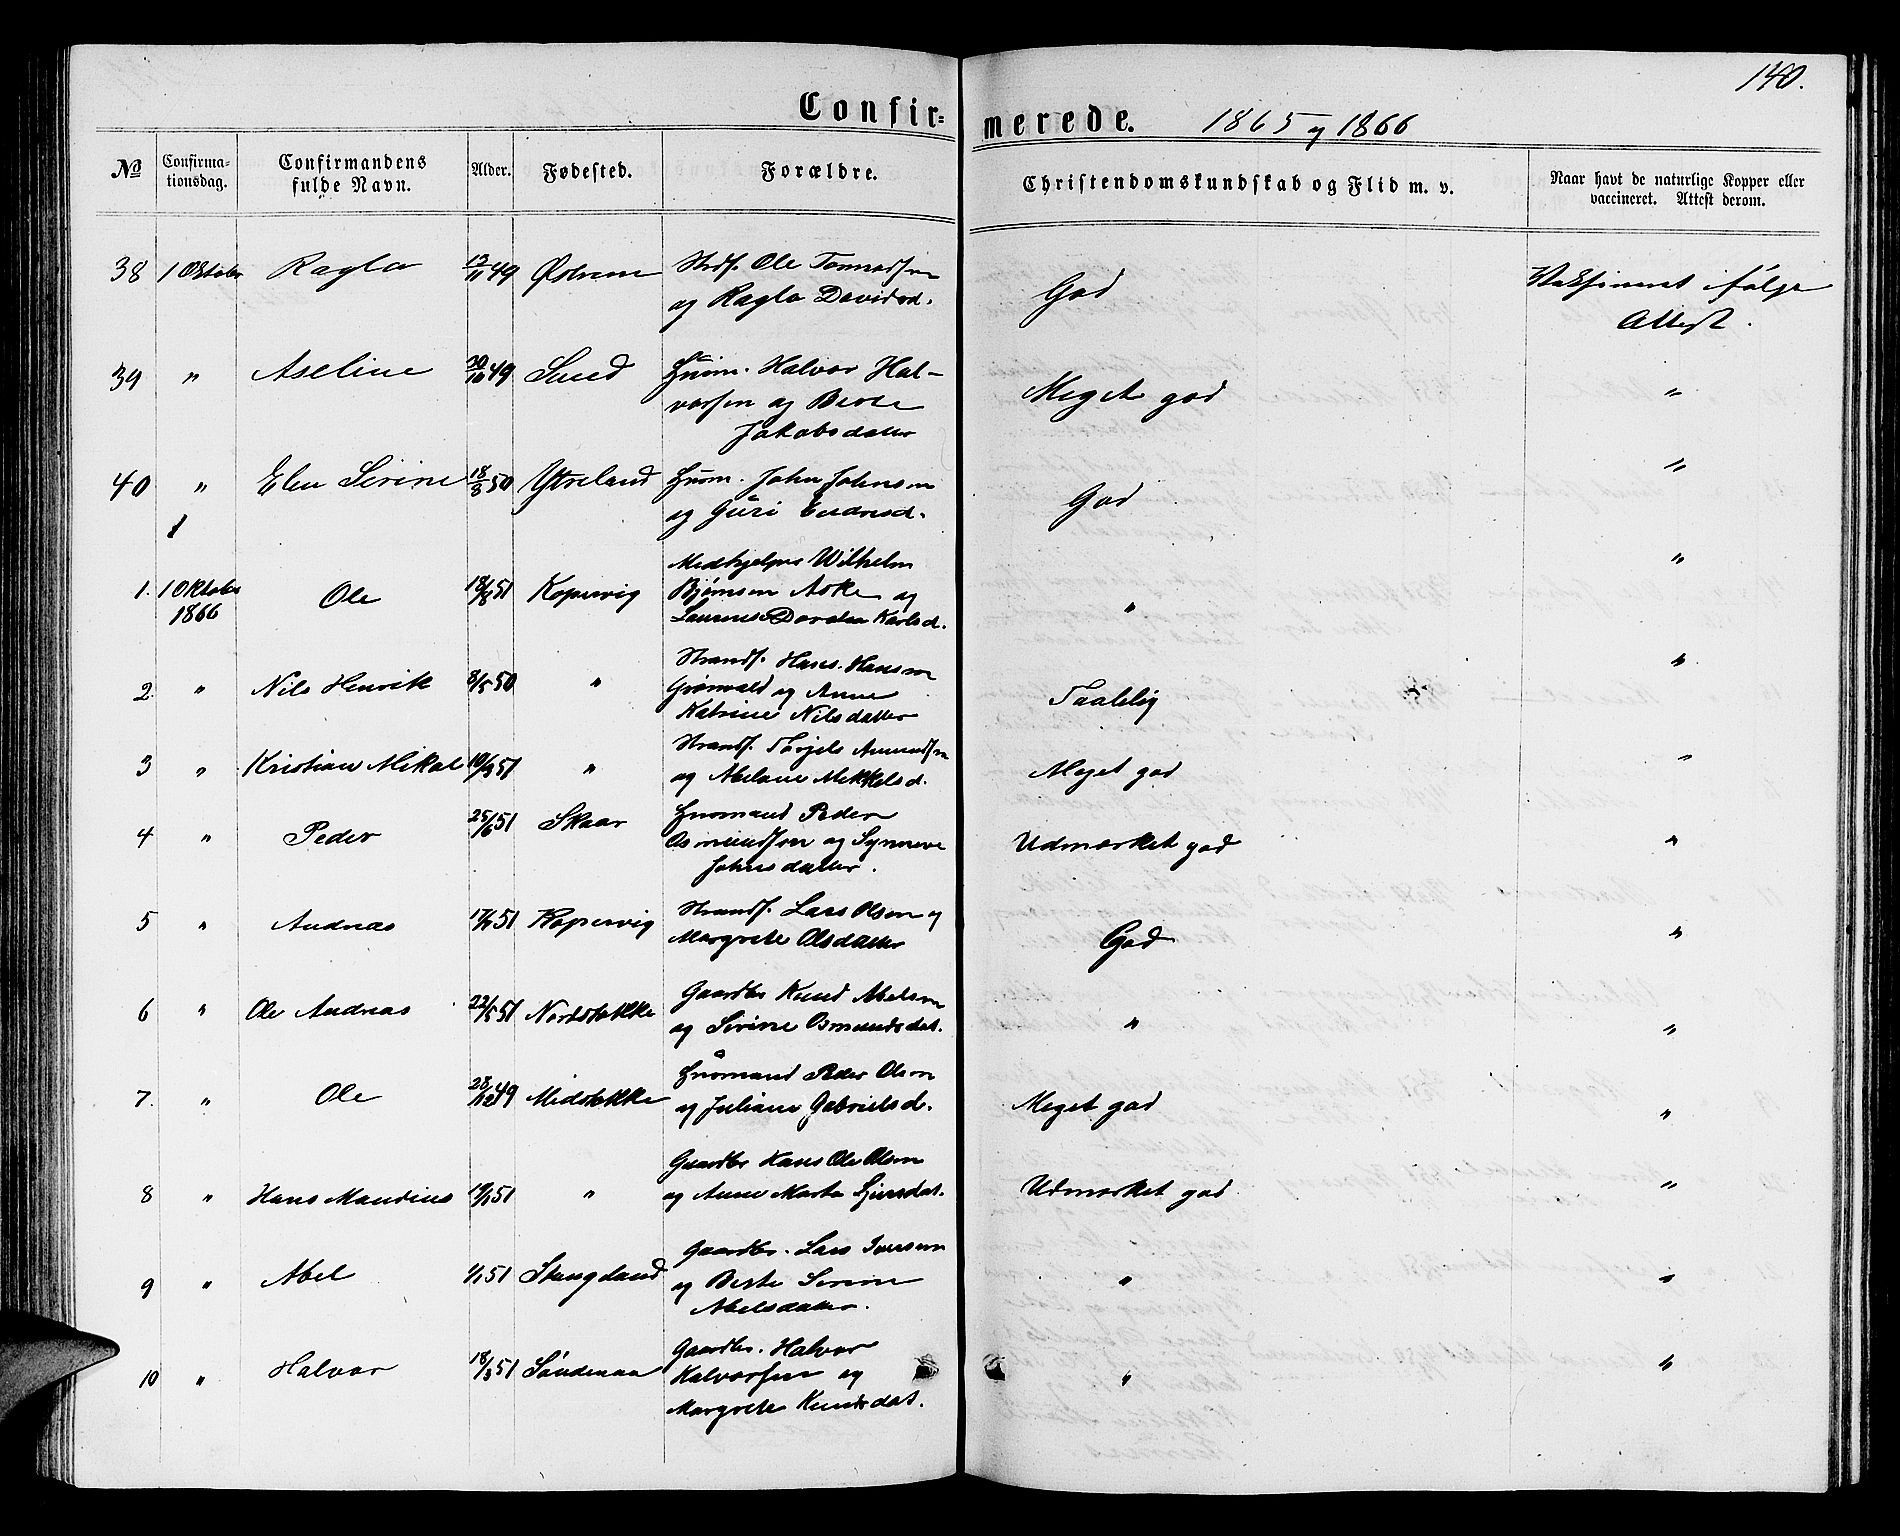 140.
Confir- merede. 1865 og 1866
No Confirma- tionsdag. Confirmandens fulde Navn. Alder. Fødested. Forældre. Christendomskundskab og Flid m. v. Naar havt de naturlige Kopper eller vaccineret. Attest derom.
38 1 Oktober Ragla 49 Østreim Strdf. Ole Tormodsen God Vaksineret ifølge
og Ragla Davidsd. Attest.
39 " Aseline 30/10 49 Sund Huusm. Halvor Hal- Meget god "
vorsen og Berte
Jakobsdatter
40 " Elen Serine 18/3 50 Ytreland Huusm. John Johnsen God "
og Guri Endresd.
1. 1 Oktober Ole 18/8 51 Kopervig Medhjelper Wilhelm " "
1866 Bjørnsen Aske og
Dorothea Karlsd.
2. " Nils Henrik 8/5 50 " Strandf. Hans Hansen Taalelig "
Grønvald og Anne
Katrine Nilsdatter
3 " Kristian Mikal 10/9 51 " Strandf. Torjels Amundsen Meget god "
og Abelone Mikkelsd.
4 " Peder 25/6 51 Skaar Huusmand Peder Udmærket god "
Osmundsen og Synneve
Johnsdatter.
5 " Andreas 51 Kopervig Strandf. Lars Olsen og God "
Margrete Olsdatter
6 " Ole Andreas 22/5 51 Nordstokke Gaardbr Knud Abelsen " "
og Serine Osmundsdat.
7. " Ole 28/12 49 Midstokke Huusmand Peder Olsen Meget god "
og Juliane Gabrielsd.
8 " Hans Mandius 51 " Gaardbr Hans Ole Olsen Udmærket god "
og Anne Marta
9 " Abel 1/1 51 Stangeland Gaardbr. Lars Iversen " "
og Berte Serine
Abelsdatter.
10 " Halvor 18/3 51 Søndenaa Gaardbr. Halvor " "
Halvorsen og
Margrete Knudsdat.